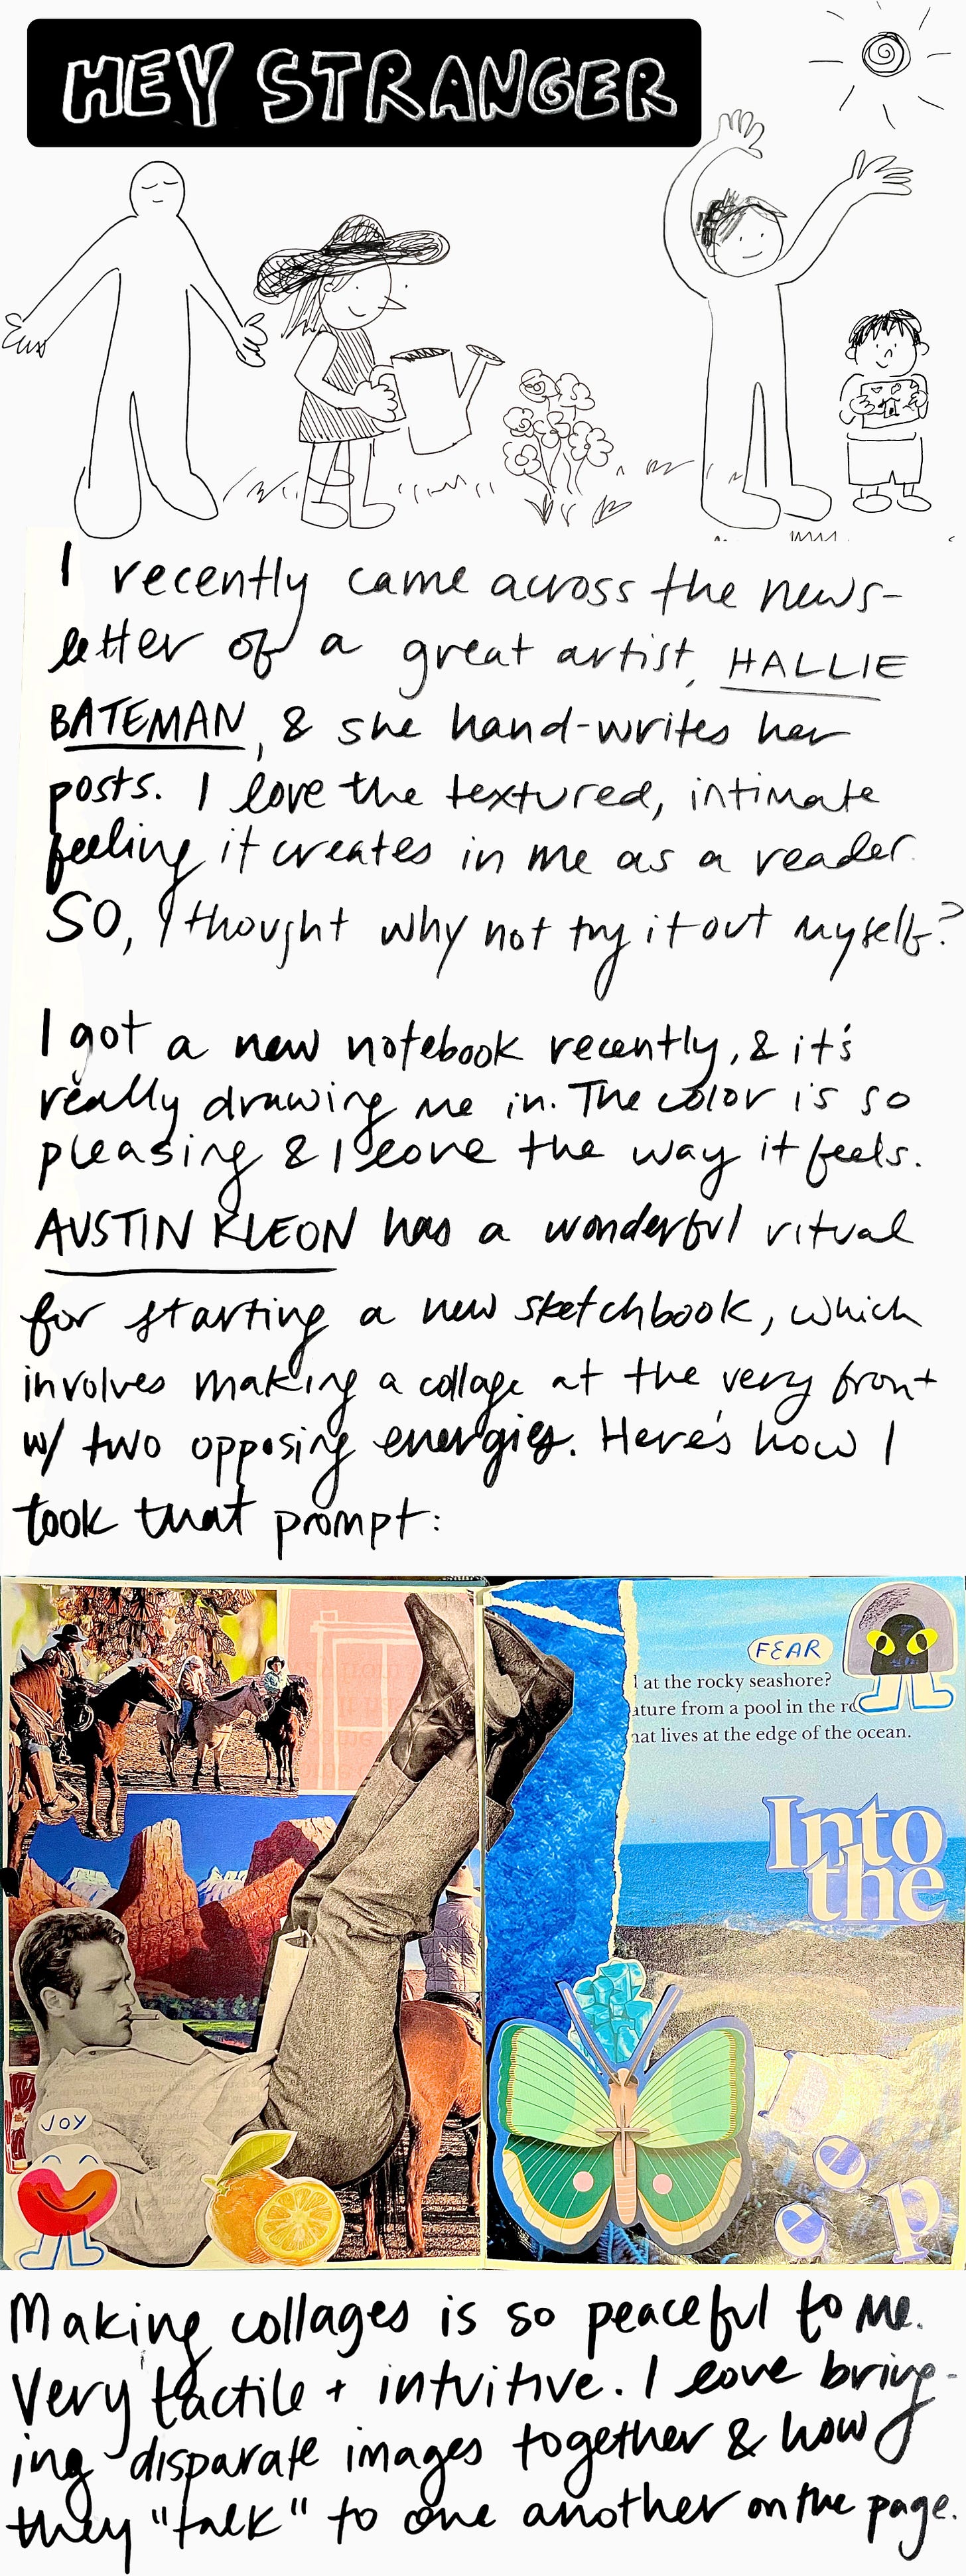 HEY STRANGER
I recently came across the news-
letter of a great artist, HALLIE
BATEMAN, & she hand-writes her
posts. I love the textured, intimate
feeling it creates in me as a reader.
SO, I thought why not try it out myself?
I got a new notebook recently, & it's
really drawing me in. The color is so
pleasing & I love the way it feels.
AUSTIN KLEON has a wonderful ritual
for starting a new sketchbook, which
involves making a collage at the very front
w/ two opposing energies. Here's how I
took that prompt:
JOY
FEAR
at the rocky seashore?
ature from a pool in the ro
hat lives at the edge of the ocean.
Into
the
D
e
e
p
Making collages is so peaceful to me.
Very tactile + intuitive. I love bring-
ing disparate images together & how
they "talk" to one another on the page.